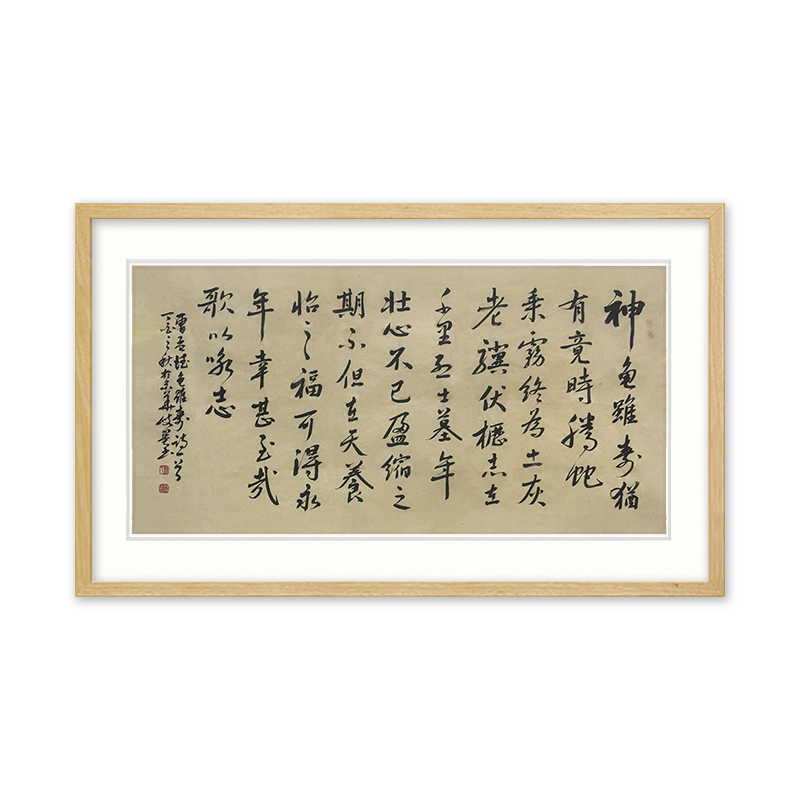 神龜雖壽猶
有竟時騰蛇
乘霧終為土灰
老驥伏櫪志在
千里烈士暮年
壯心不已盈縮之
期不但在天養
怡之福可得永
年幸甚至哉
歌以咏志
曹孟德龜雖壽詩一首
丁酉之秋於京華